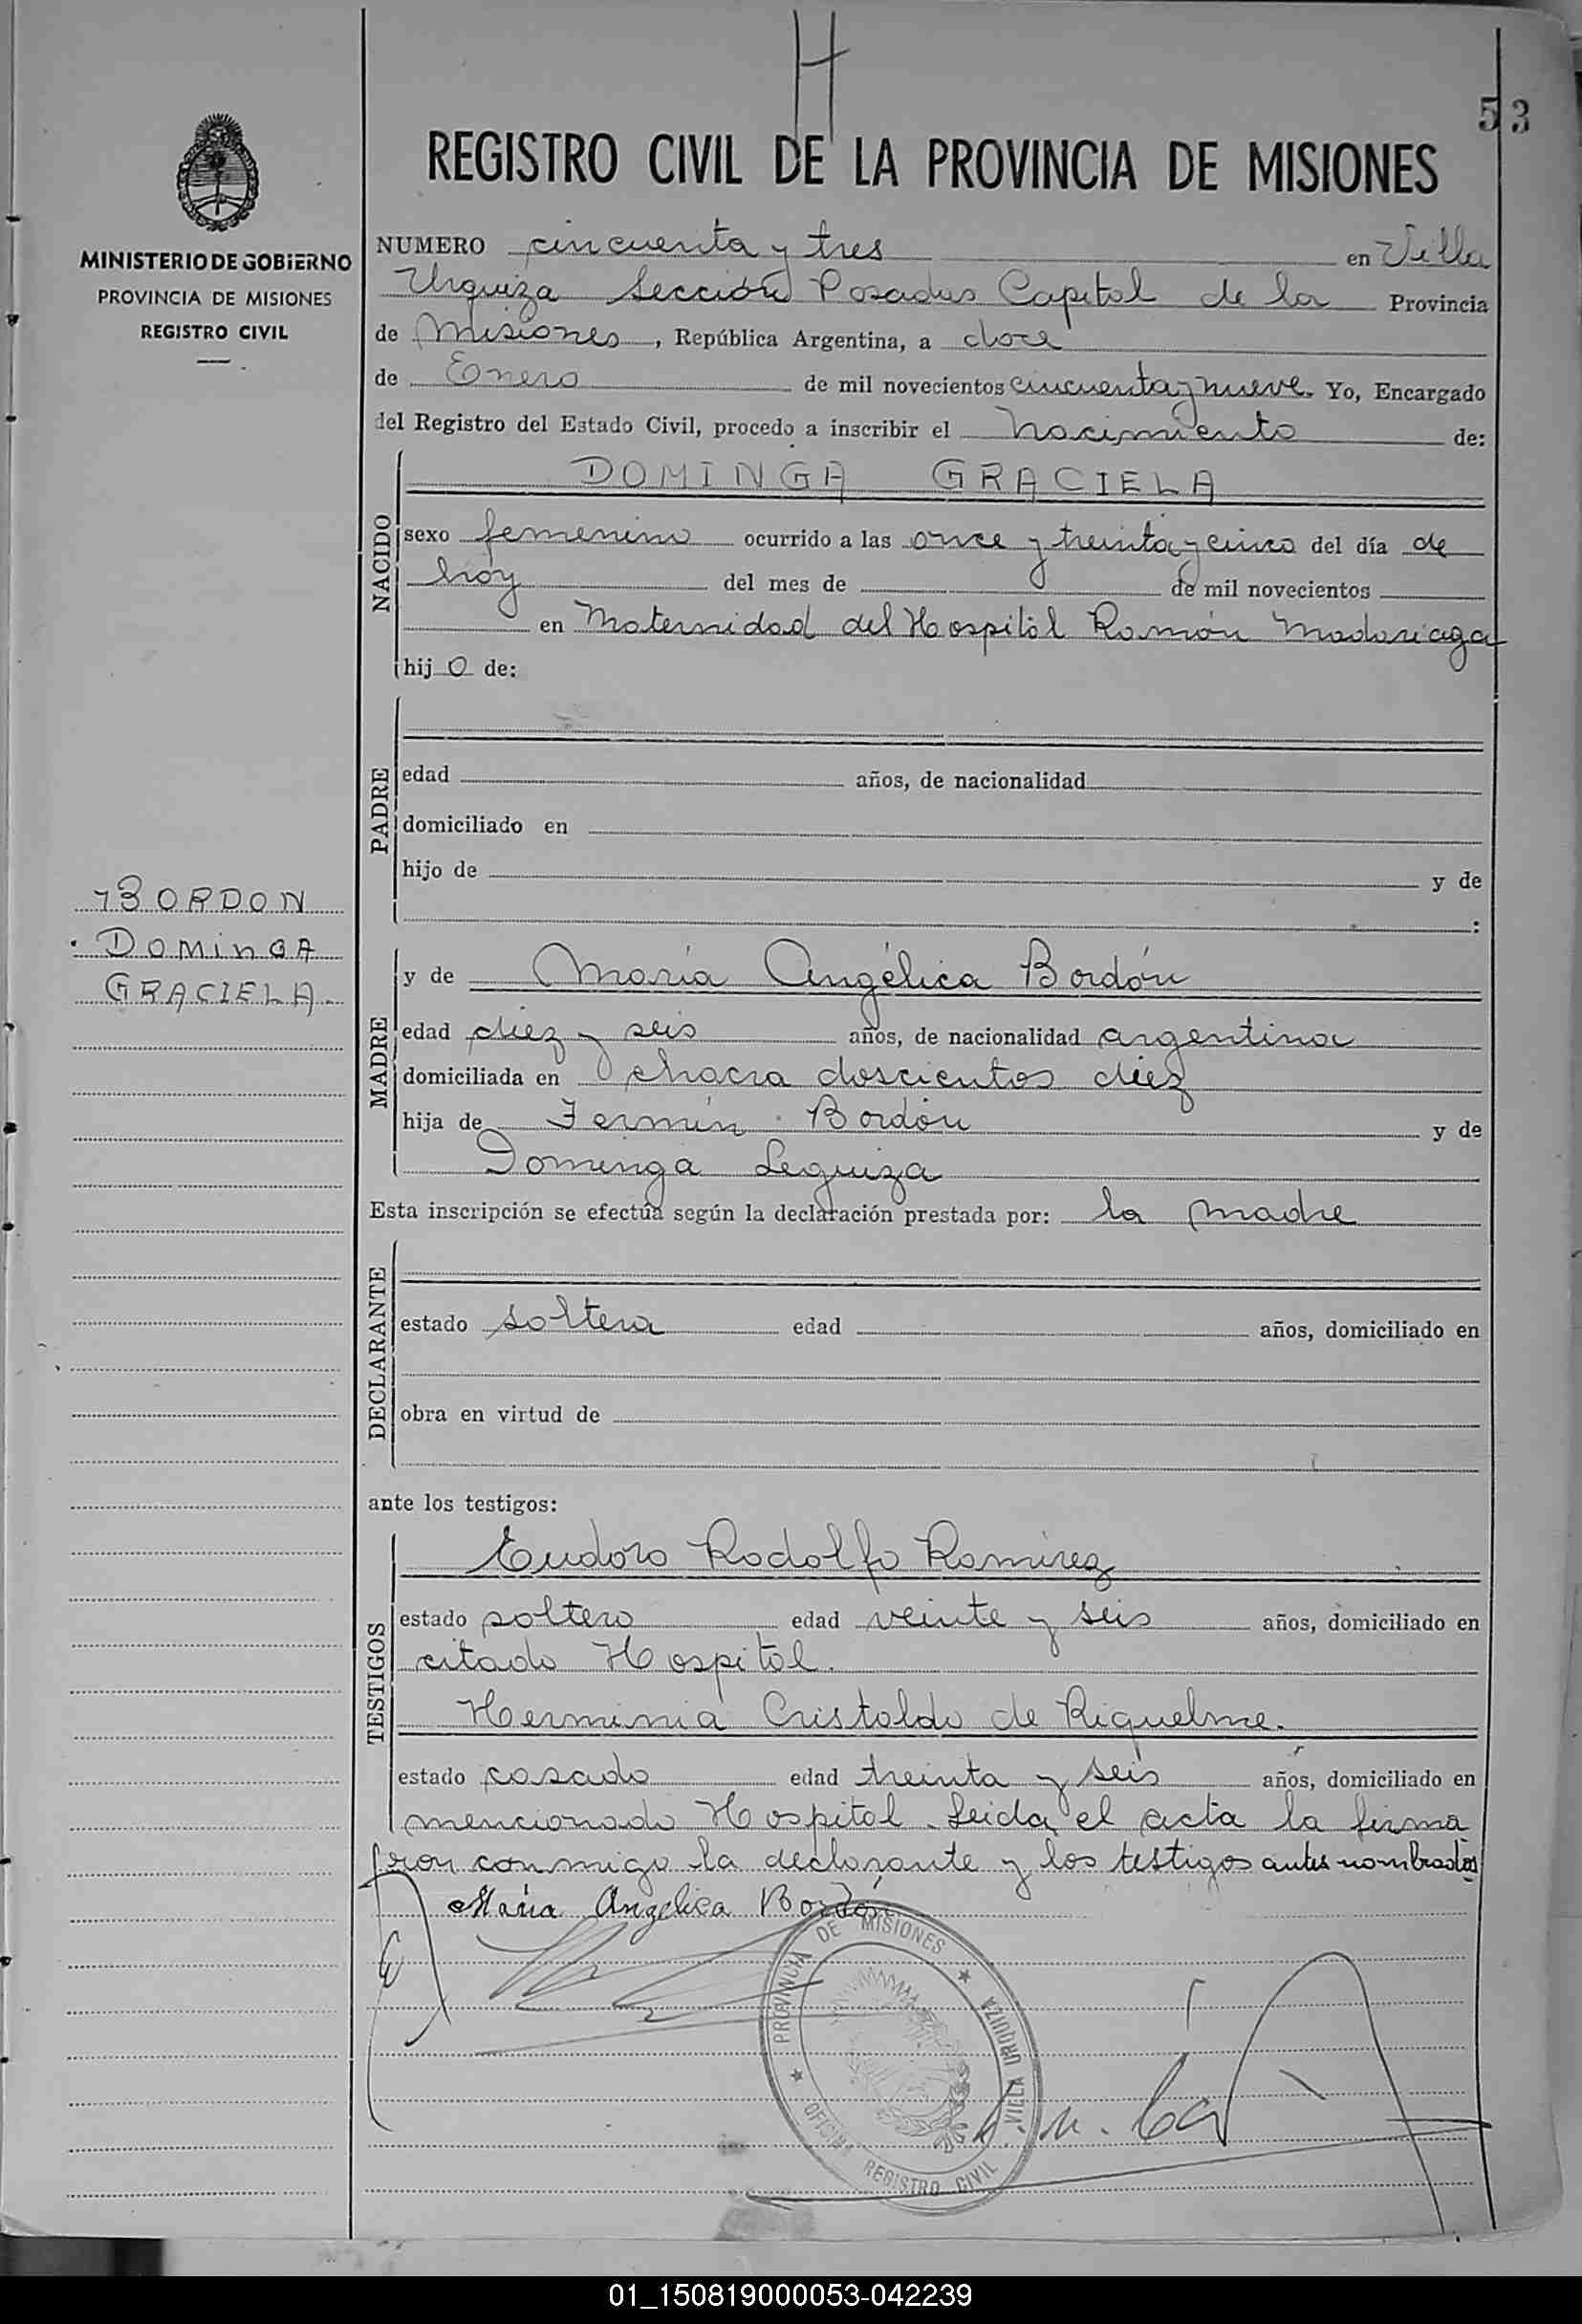 H
53
REGISTRO CIVIL DE LA PROVINCIA DE MISIONES
MINISTERIO DE GOBIERNO
PROVINCIA DE MISIONES
REGISTRO CIVIL
NUMERO cincuenta y tres en Villa
Urquiza Sección Posadas Capital de la Provincia
de Misiones, República Argentina, a doce
de Enero de mil novecientos cincuenta y nueve. Yo, Encargado
del Registro del Estado Civil, procedo a inscribir el nacimiento de:
NACIDO
DOMINGA GRACIELA
sexo femenino ocurrido a las once y treinta y cinco del día de
hoy del mes de de mil novecientos
en Maternidad del Hospital Ramón Madariaga
hijo de:
PADRE
edad años, de nacionalidad
domiciliado en
hijo de y de
:
BORDON
DOMINGA
GRACIELA.
MADRE
y de María Angélica Bordón
edad diez y seis años, de nacionalidad argentina
domiciliada en chacra doscientos diez
hija de Fermín Bordón y de
Dominga Leguiza
Esta inscripción se efectúa según la declaración prestada por: la madre
DECLARANTE
estado soltera edad años, domiciliado en
obra en virtud de
ante los testigos:
TESTIGOS
Eudoro Rodolfo Ramírez
estado soltero edad veinte y seis años, domiciliado en
citado Hospital.
Herminia Cristaldo de Riquelme.
estado casado edad treinta y seis años, domiciliado en
mencionado Hospital. Leida el acta la firma
ron conmigo la declarante y los testigos antes nombrados
María Angelica Bordón
PROVINCIA DE MISIONES ★ VILLA URQUIZA
★ OFICINA REGISTRO CIVIL
01_150819000053-042239